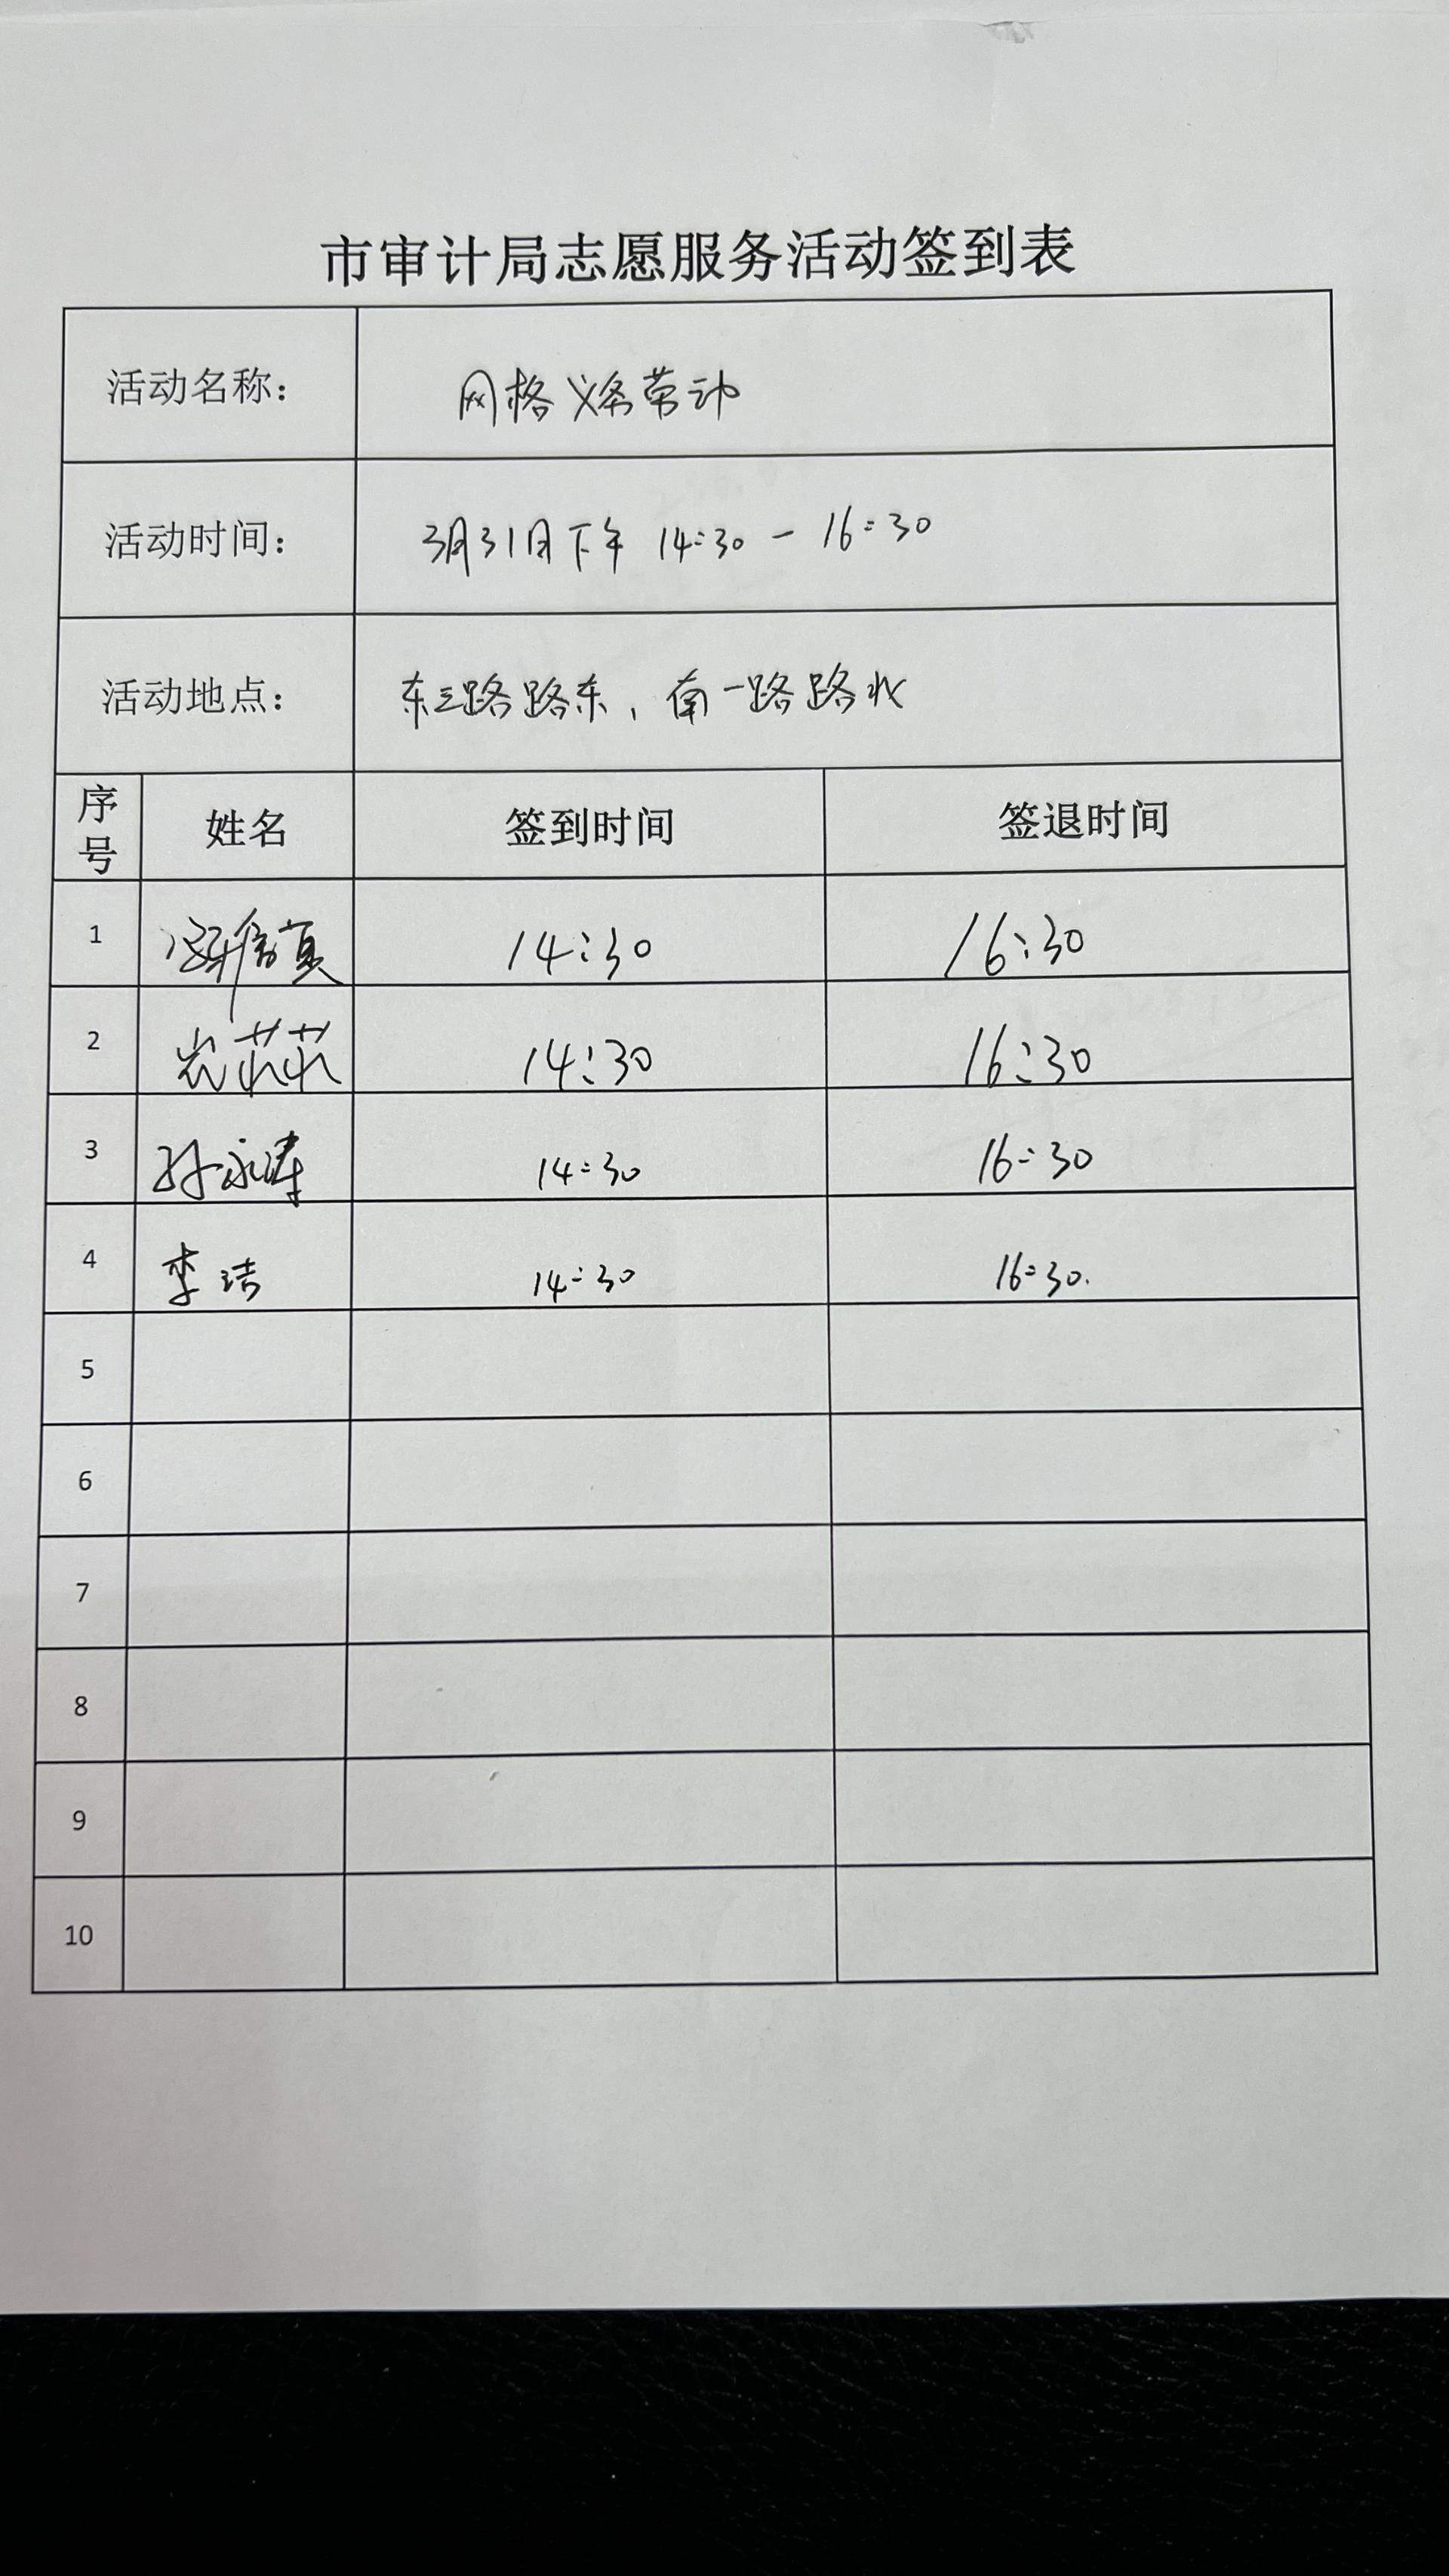 市审计局志愿服务活动签到表
活动名称： 网格义务劳动
活动时间： 3月31日下午 14:30 - 16:30
活动地点： 东三路路东，南一路路北
序号 姓名 签到时间 签退时间
1 14:30 16:30
2 14:30 16:30
3 孙永涛 14:30 16:30
4 李洁 14:30 16:30.
5
6
7
8
9
10